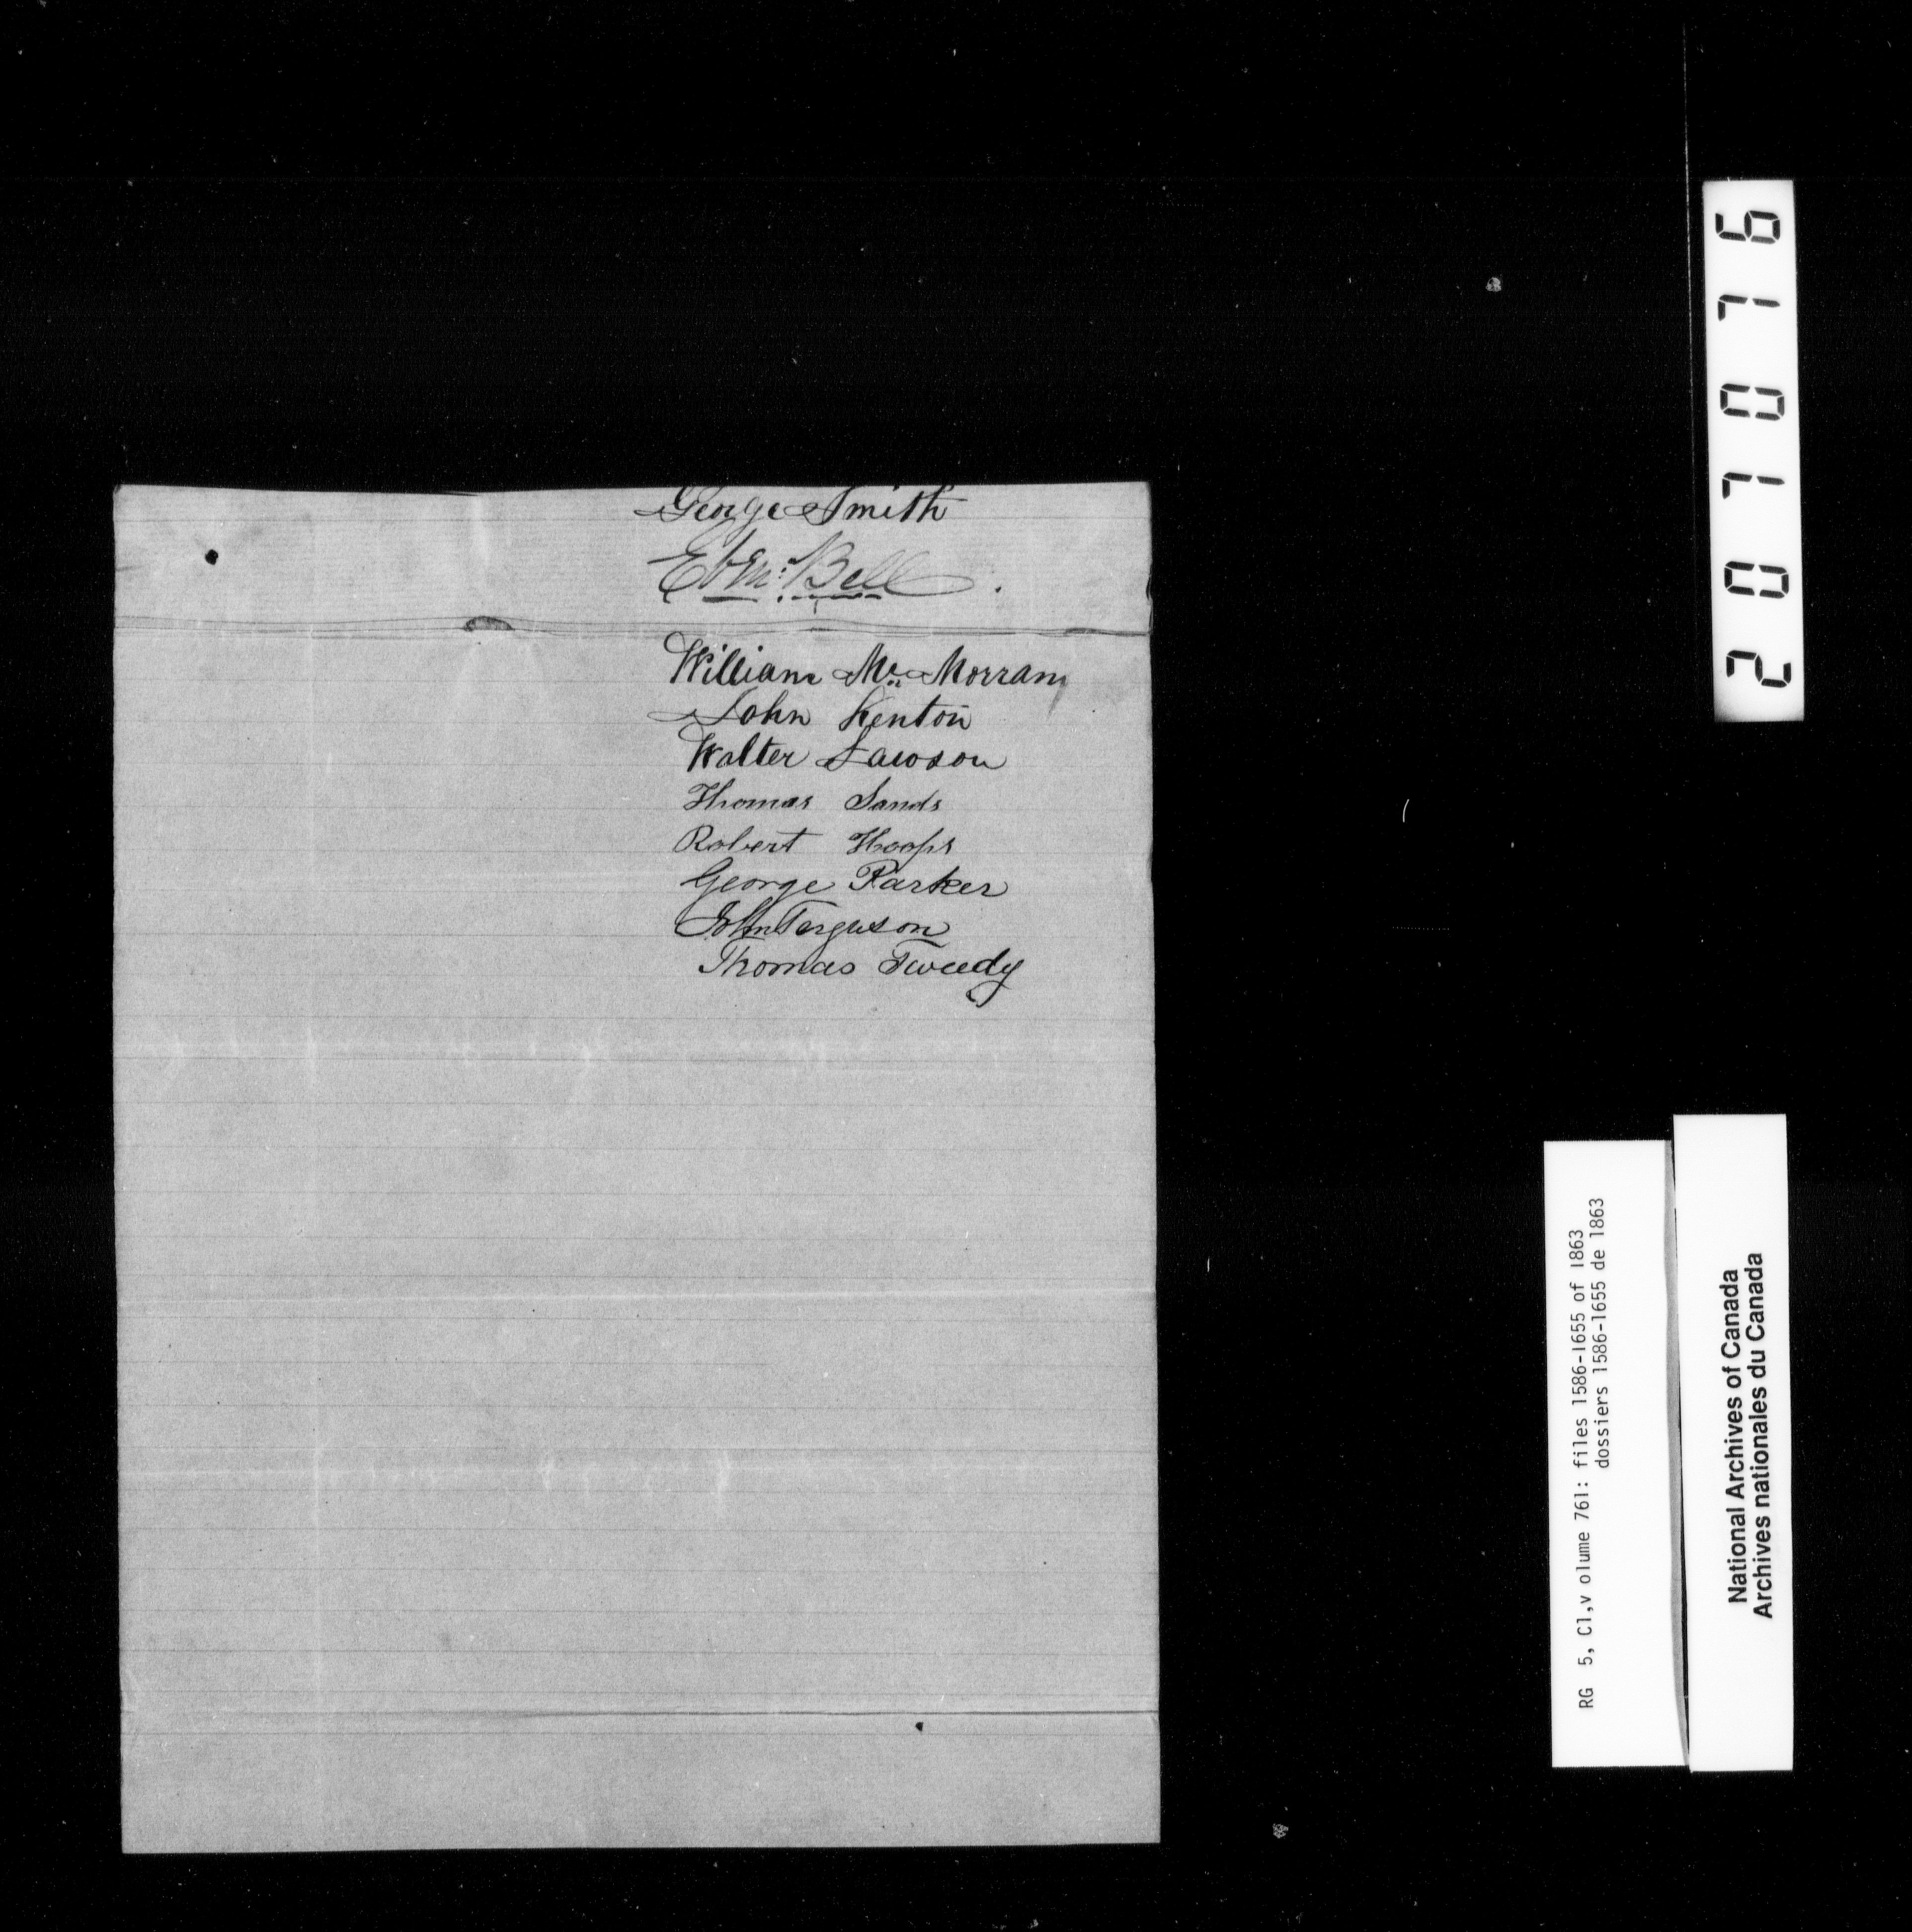 George Smith
Ebenr: Bell.
William Mc Morran
John Kenton
Walter Lawson
Thomas Sands
Robert Hoops
George Parker
John Ferguson
Thomas Tweedy
207076
RG 5, C1,v olume 761: files 1586-1655 of 1863
dossiers 1586-1655 de 1863
National Archives of Canada
Archives nationales du Canada